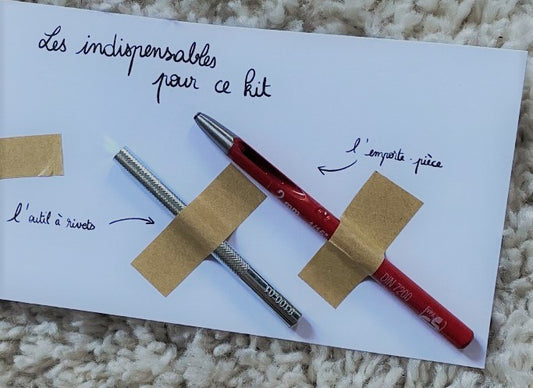 Les indispensables
pour ce kit
l'emporte-pièce
l'outil à rivets
DIN 7200